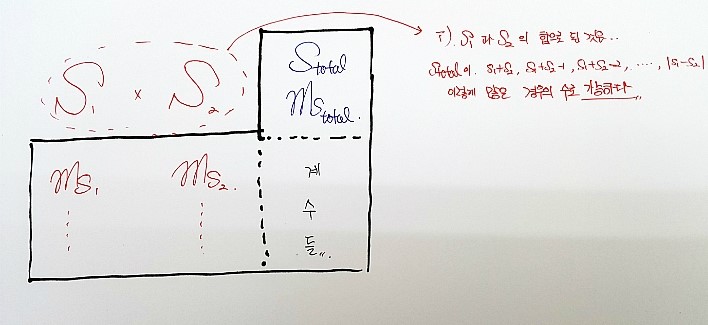 S₁ × S₂
S_total
m_s_total.
m_s₁ m_s₂.
계
수
들,,
i). S₁ 과 S₂ 의 합으로 된 것은..
S_total 이. s₁+s₂, s₁+s₂-1, s₁+s₂-2, ...., |s₁-s₂|
이렇게 많은 경우의 수로 가능하다,,